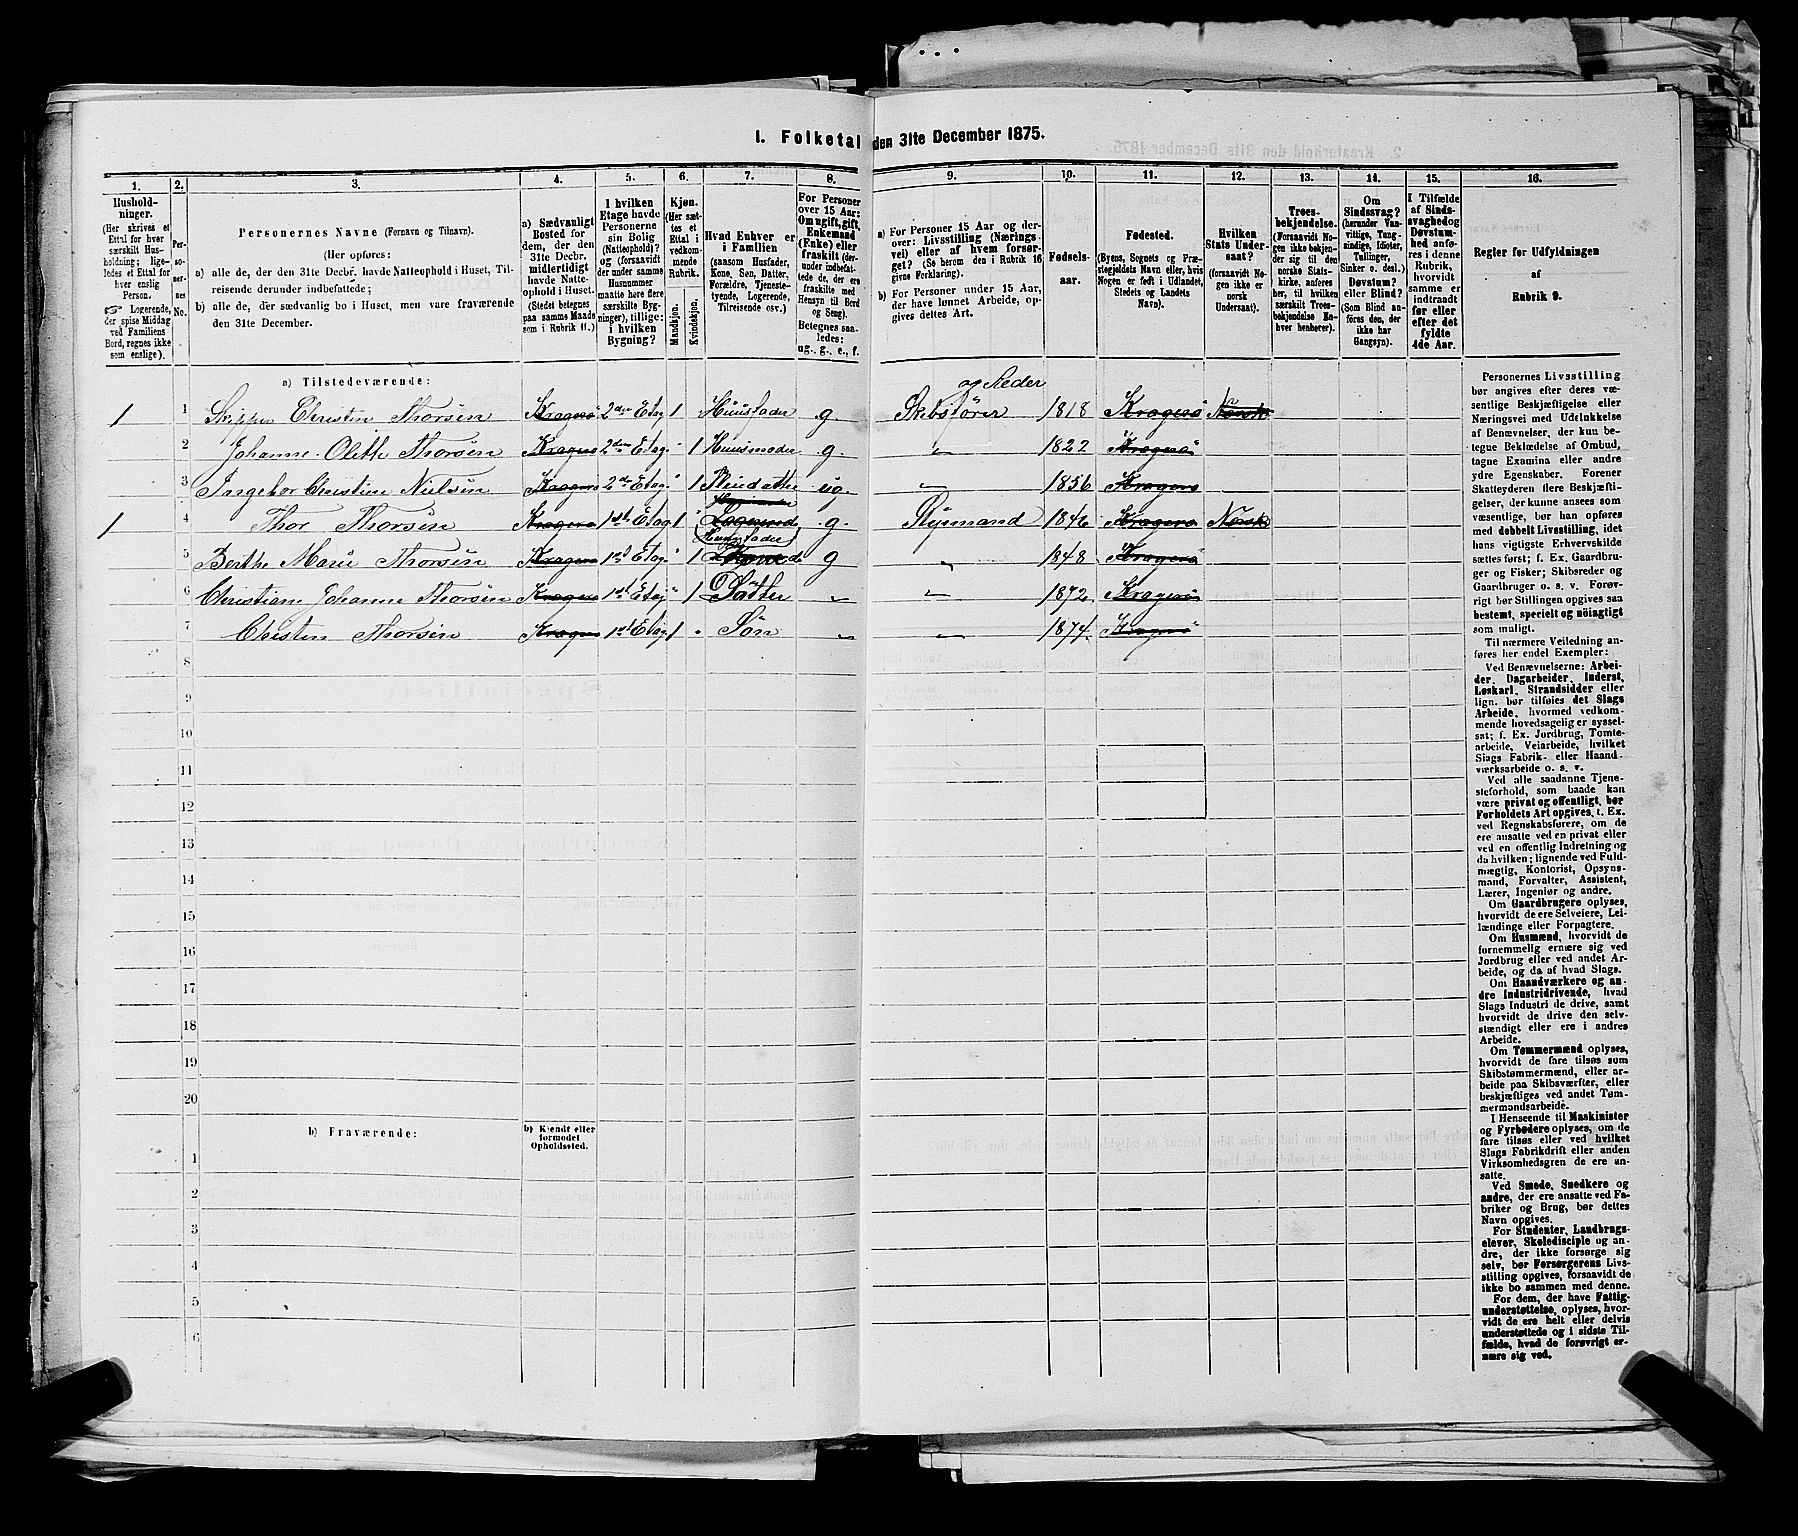 1. Folketal den 31te December 1875.
1. 2. 3. 4. 5. 6. 7. 8. 9. 10. 11. 12. 13. 14. 15. 16.
Hushold-
ninger.
(Her skrives et
Ettal for hver
særskilt Hus-
holdning; lige-
ledes et Ettal for
hver enslig
Person.
☞ Logerende,
der spise Middag
ved Familiens
Bord, regnes ikke
som enslige).
Per-
so-
ner-
nes
No.
Personernes Navne (Fornavn og Tilnavn).
(Her opføres:
a) alle de, der den 31te Decbr. havde Natteophold i Huset, Til-
reisende derunder indbefattede;
b) alle de, der sædvanlig bo i Huset, men vare fraværende
den 31te December.
a) Sædvanligt
Bosted for
dem, der den
31te Decbr.
midlertidigt
havde Natte-
ophold i Huset.
(Stedet betegnes
paa samme Maade
som i Rubrik 11.)
I hvilken
Etage havde
Personerne
sin Bolig
(Natteophold)?
og (forsaavidt
der under samme
Husnummer
maatte høre flere
særskilte Byg-
ninger), tillige:
i hvilken
Bygning?
Kjøn.
(Her sæt-
tes et
Ettal i
vedkom-
mende
Rubrik.
Mandkjøn.
Kvindekjøn.
Hvad Enhver er
i Familien
(saasom Husfader,
Kone, Søn, Datter,
Forældre, Tjeneste-
tyende, Logerende,
Tilreisende osv.)
For Personer
over 15 Aar:
Om ugift, gift,
Enkemand
(Enke) eller
fraskilt (der-
under indbefat-
tede de, der ere
fraskilte med
Hensyn til Bord
og Seng).
Betegnes saa-
ledes:
ug., g., e., f.
a) For Personer 15 Aar og der-
over: Livsstilling (Nærings-
vei) eller af hvem forsør-
get? (Se herom den i Rubrik 16
givne Forklaring).
b) For Personer under 15 Aar,
der have lønnet Arbeide, op-
gives dettes Art.
Fødsels-
aar.
Fødested.
(Byens, Sognets og Præ-
stegjeldets Navn eller, hvis
Nogen er født i Udlandet,
Stedets og Landets
Navn).
Hvilken
Stats Under-
saat?
(forsaavidt No-
gen ikke er
norsk
Undersaat).
Troes-
bekjendelse.
(Forsaavidt No-
gen ikke bekjen-
der sig til den
norske Stats-
kirke, anføres
her, til hvilken
særskilt Troes-
bekjendelse En-
hver henhører).
Om
Sindssvag?
(herunder Van-
vittige, Tung-
sindige, Idioter,
Tullinger,
Sinker o. desl.)
Døvstum?
eller Blind?
(Som Blind an-
føres den, der
ikke har
Gangsyn).
I Tilfælde
af Sinds-
svaghed og
Døvstum-
hed anfø-
res i denne
Rubrik,
hvorvidt
samme er
indtraadt
før eller
efter det
fyldte
4de Aar.
Regler for Udfyldningen
af
Rubrik 9.
a) Tilstedeværende:
og Reder
1 1 Skipper Christen Thorsen Kragerø 2den Etag 1 Huusfader g. Skibsfører 1818 Kragerø Norsk
2 Johanne Olette Thorsen Kragerø 2den Etag 1 Huusmoder g. " 1822 Kragerø
3 Ingebor Christine Nielsen Kragerø 2den Etag 1 Pleiedatter ug. " 1856 Kragerø
1 4 Thor Thorsen Kragerø 1ste Etag 1 Logerende g. Styrmand 1846 Kragerø Norsk
Huusfader
5 Berthe Marie Thorsen Kragerø 1ste Etag 1 Kone g " 1848 Kragerø
6 Christiane Johanne Thorsen Kragerø 1ste Etag 1 Datter " " 1872 Kragerø
7 Christen Thorsen Kragerø 1ste Etag 1 " Søn " " 1874 Kragerø
8
9
10
11
12
13
14
15
16
17
18
19
20
b) Fraværende:
b) Kjendt eller
formodet
Opholdssted.
1
2
3
4
5
6
Personernes Livsstilling
bør angives efter deres væ-
sentlige Beskjæftigelse eller
Næringsvei med Udelukkelse
af Benævnelser, der kun be-
tegne Beklædelse af Ombud,
tagne Examina eller andre
ydre Egenskaber. Forener
Skatteyderen flere Beskjæfti-
gelser, der kunne ansees som
væsentlige, bør han opføres
med dobbelt Livsstilling, idet
hans vigtigste Erhvervskilde
sættes først; f. Ex. Gaardbru-
ger og Fisker; Skibsreder og
Gaardbruger o. s. v. Forøv-
rigt bør Stillingen opgives saa
bestemt, specielt og nöiagtigt
som muligt.
Til nærmere Veiledning an-
føres her endel Exempler:
Ved Benævnelserne: Arbei-
der, Dagarbeider, Inderst,
Løskarl, Strandsidder eller
lign. bør tilføies det Slags
Arbeide, hvormed vedkom-
mende hovedsagelig er syssel-
sat; f. Ex. Jordbrug, Tomte-
arbeide, Veiarbeide, hvilket
Slags Fabrik- eller Haand-
værksarbeide o. s. v.
Ved alle saadanne Tjene-
steforhold, som baade kan
være privat og offentligt, bør
Forholdets Art opgives, t. Ex.
ved Regnskabsførere, om de
ere ansatte ved en privat eller
ved en offentlig Indretning og
da hvilken; lignende ved Fuld-
mægtig, Kontorist, Opsyns-
mand, Forvalter, Assistent,
Lærer, Ingeniør og andre.
Om Gaardbrugere oplyses,
hvorvidt de ere Selveiere, Lei-
lændinge eller Forpagtere.
Om Husmænd, hvorvidt de
fornemmelig ernære sig ved
Jordbrug eller ved andet Ar-
beide, og da af hvad Slags.
Om Haandværkere og an-
dre Industridrivende, hvad
Slags Industri de drive, samt
hvorvidt de drive den selv-
stændigt eller ere i andres
Arbeide.
Om Tømmermænd oplyses,
hvorvidt de fare tilsøs som
Skibstømmermænd, eller ar-
beide paa Skibsværfter, eller
beskjæftiges ved andet Tøm-
mermandsarbeide.
I Henseende til Maskinister
og Fyrbødere oplyses, om de
fare tilsøs eller ved hvilket
Slags Fabrikdrift eller anden
Virksomhedsgren de ere an-
satte.
Ved Smede, Snedkere og
andre, der ere ansatte ved Fa-
briker og Brug, bør dettes
Navn opgives.
For Studenter, Landbrugs-
elever, Skoledisciple og an-
dre, der ikke forsørge sig
selv, bør Forsørgerens Livs-
stilling opgives, forsaavidt de
ikke bo sammen med denne.
For dem, der have Fattig-
understøttelse, oplyses, hvor-
vidt de ere helt eller delvis
understøttede og i sidste Til-
fælde, hvad de forøvrigt er-
nære sig ved.